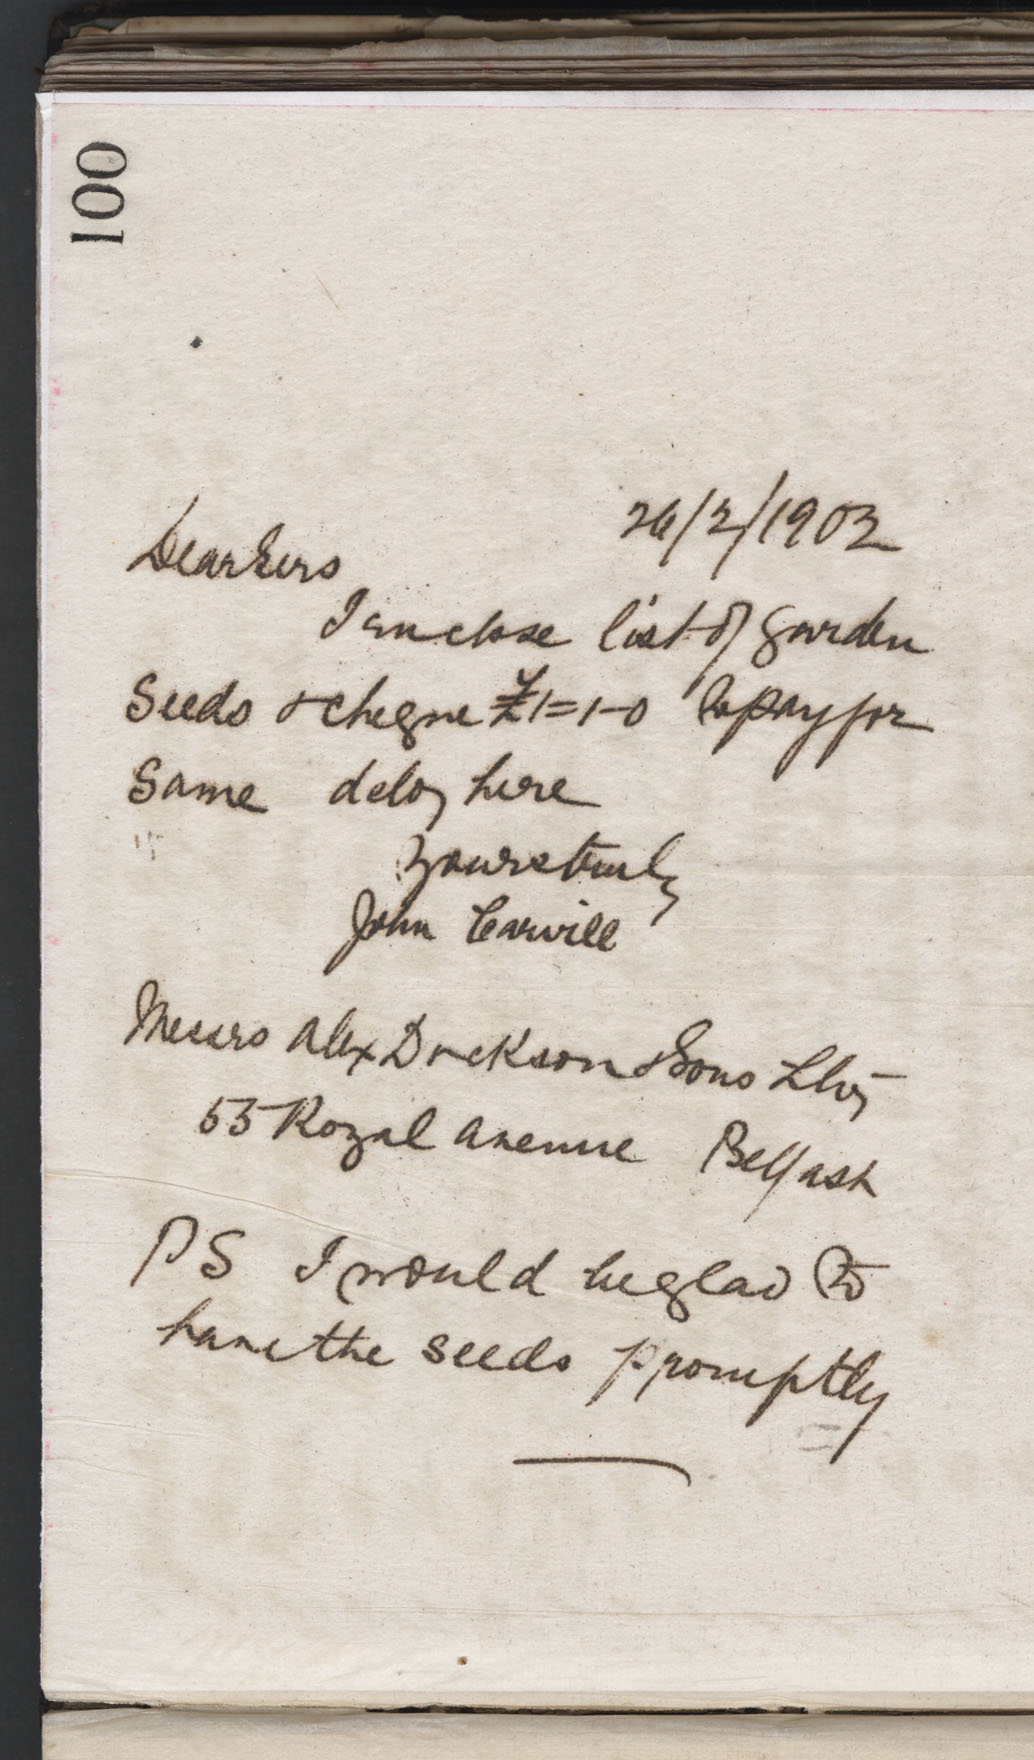 100
26/2/1902
Dear Sirs
I enclose list of garden
Seeds & cheque £1=1-0 to pay for
Same dely here
Yours truly
John Carvill
Messrs Alex Dickson & Sons
55 Royal Avenue Belfast
PS I would be glad to
have the seeds promptly